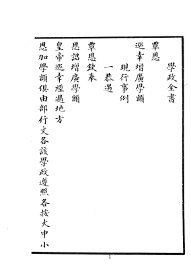 學政全書
覃恩
巡幸增廣學額
現行事例
一恭遇
覃恩欽奉
恩詔增廣學額
皇帝巡幸經過地方
恩加學額俱由部行文各該學政遵照各按大中小